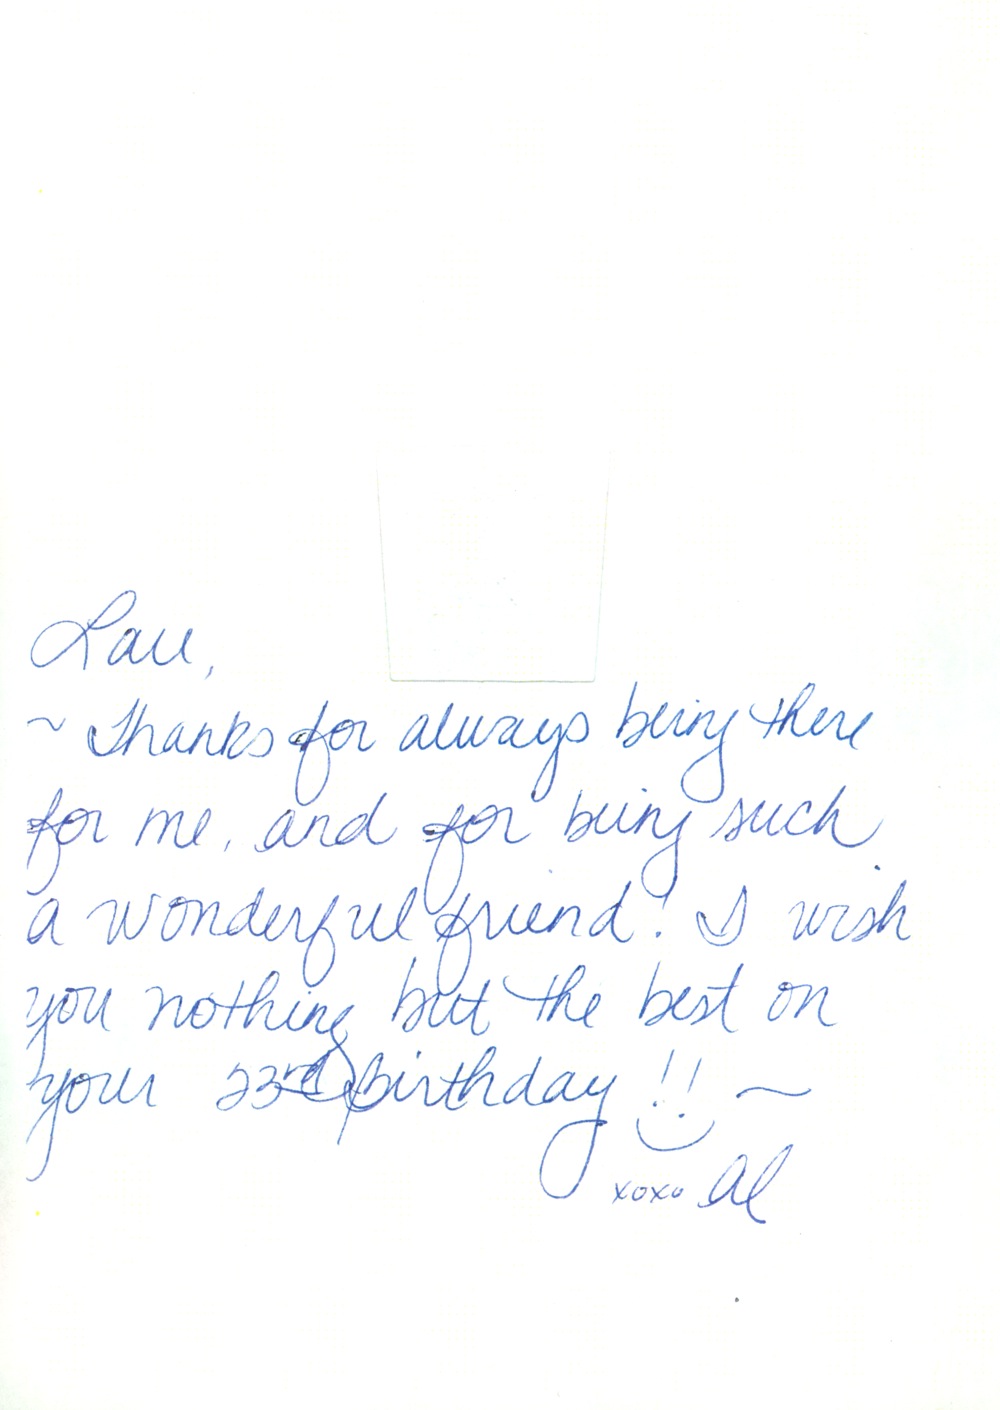 Lau,
~ Thanks for always being there
for me, and for being such
a wonderful friend! I wish
you nothing but the best on
your 23rd birthday !! ~
xoxo Al